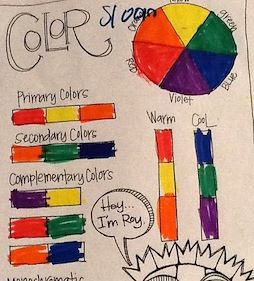 COLOR
Sloan
Yellow
green
Blue
Violet
Red
Orange
Primary Colors
Secondary Colors
Complementary Colors
Warm
Cool
Hey...
I'm Roy.
Monochromatic